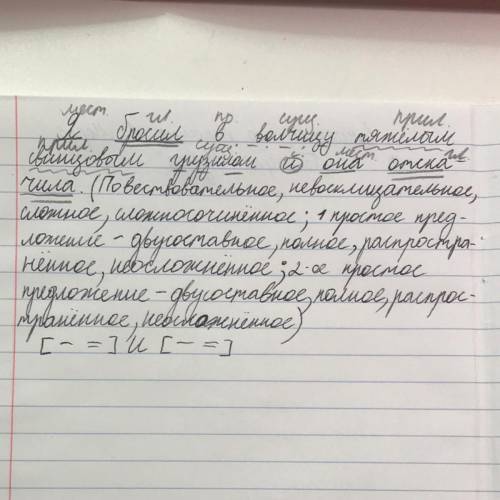 мест. гл. пр сущ. прил.
Я бросил в волчицу тяжёлым
прил. сущ. мест. гл.
свинцовым грузилом и она отска
чила. (Повествовательное, невосклицательное,
сложное, сложносочинённое; 1 простое пред-
ложение - двусоставное, полное, распростра-
нённое, неосложнённое; 2-ое простое
предложение - двусоставное, полное, распрос-
транённое, неосложнённое)
[- =] и [- =]